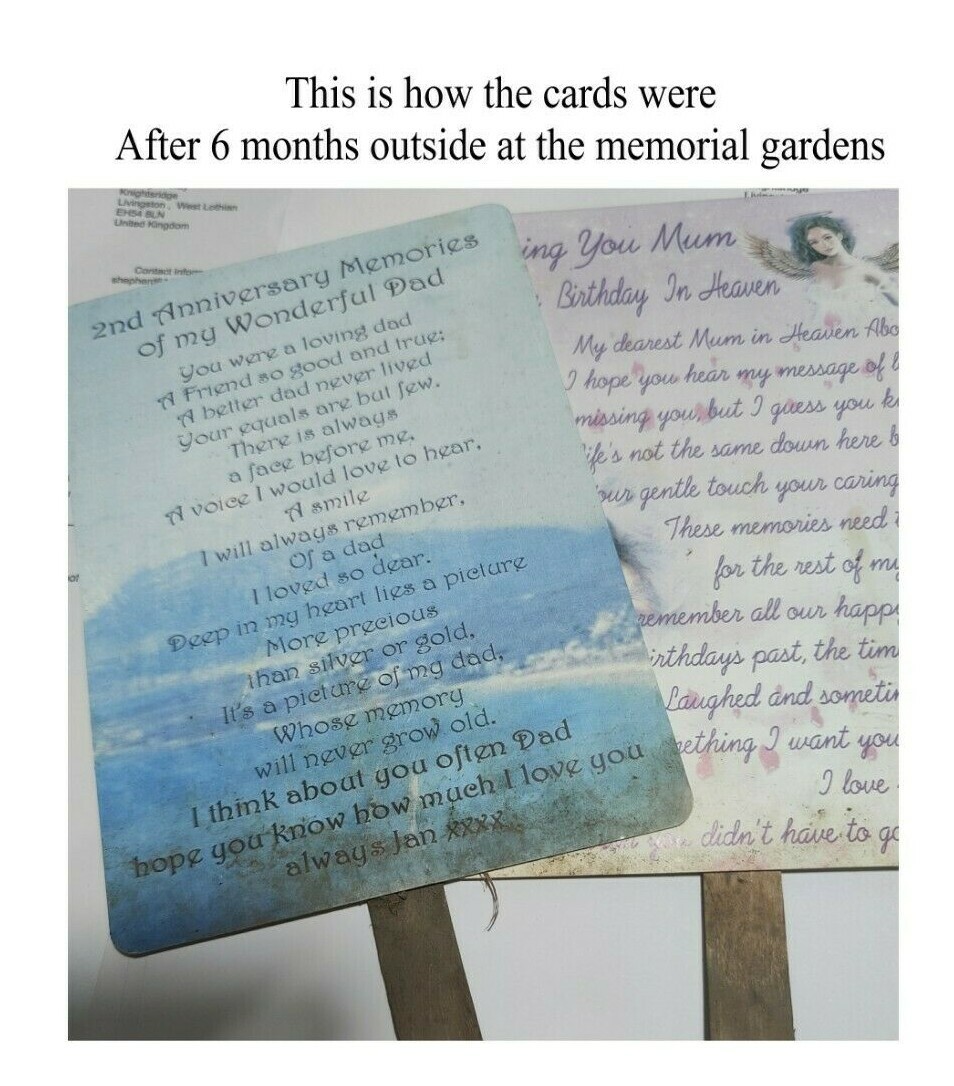 This is how the cards were
After 6 months outside at the memorial gardens
Knightsridge
Livingston, West Lothian
EH54 8LN
United Kingdom
Contact Infor
2nd Anniversary Memories
of my Wonderful Dad
You were a loving dad
A Friend so good and true;
A better dad never lived
Your equals are but few.
There is always
a face before me,
A voice I would love to hear,
A smile
I will always remember,
Of a dad
I loved so dear.
Deep in my heart lies a picture
More precious
than silver or gold,
It's a picture of my dad,
Whose memory
will never grow old.
I think about you often Dad
hope you know how much I love you
always Jan xxxx
ing You Mum
Birthday In Heaven
My dearest Mum in Heaven Abo
I hope you hear my message of l
missing you, but I guess you k
ife's not the same down here b
our gentle touch your caring
These memories need
for the rest of my
remember all our happ
irthdays past, the tim
Laughed and someti
ething I want you
I love
didn't have to go